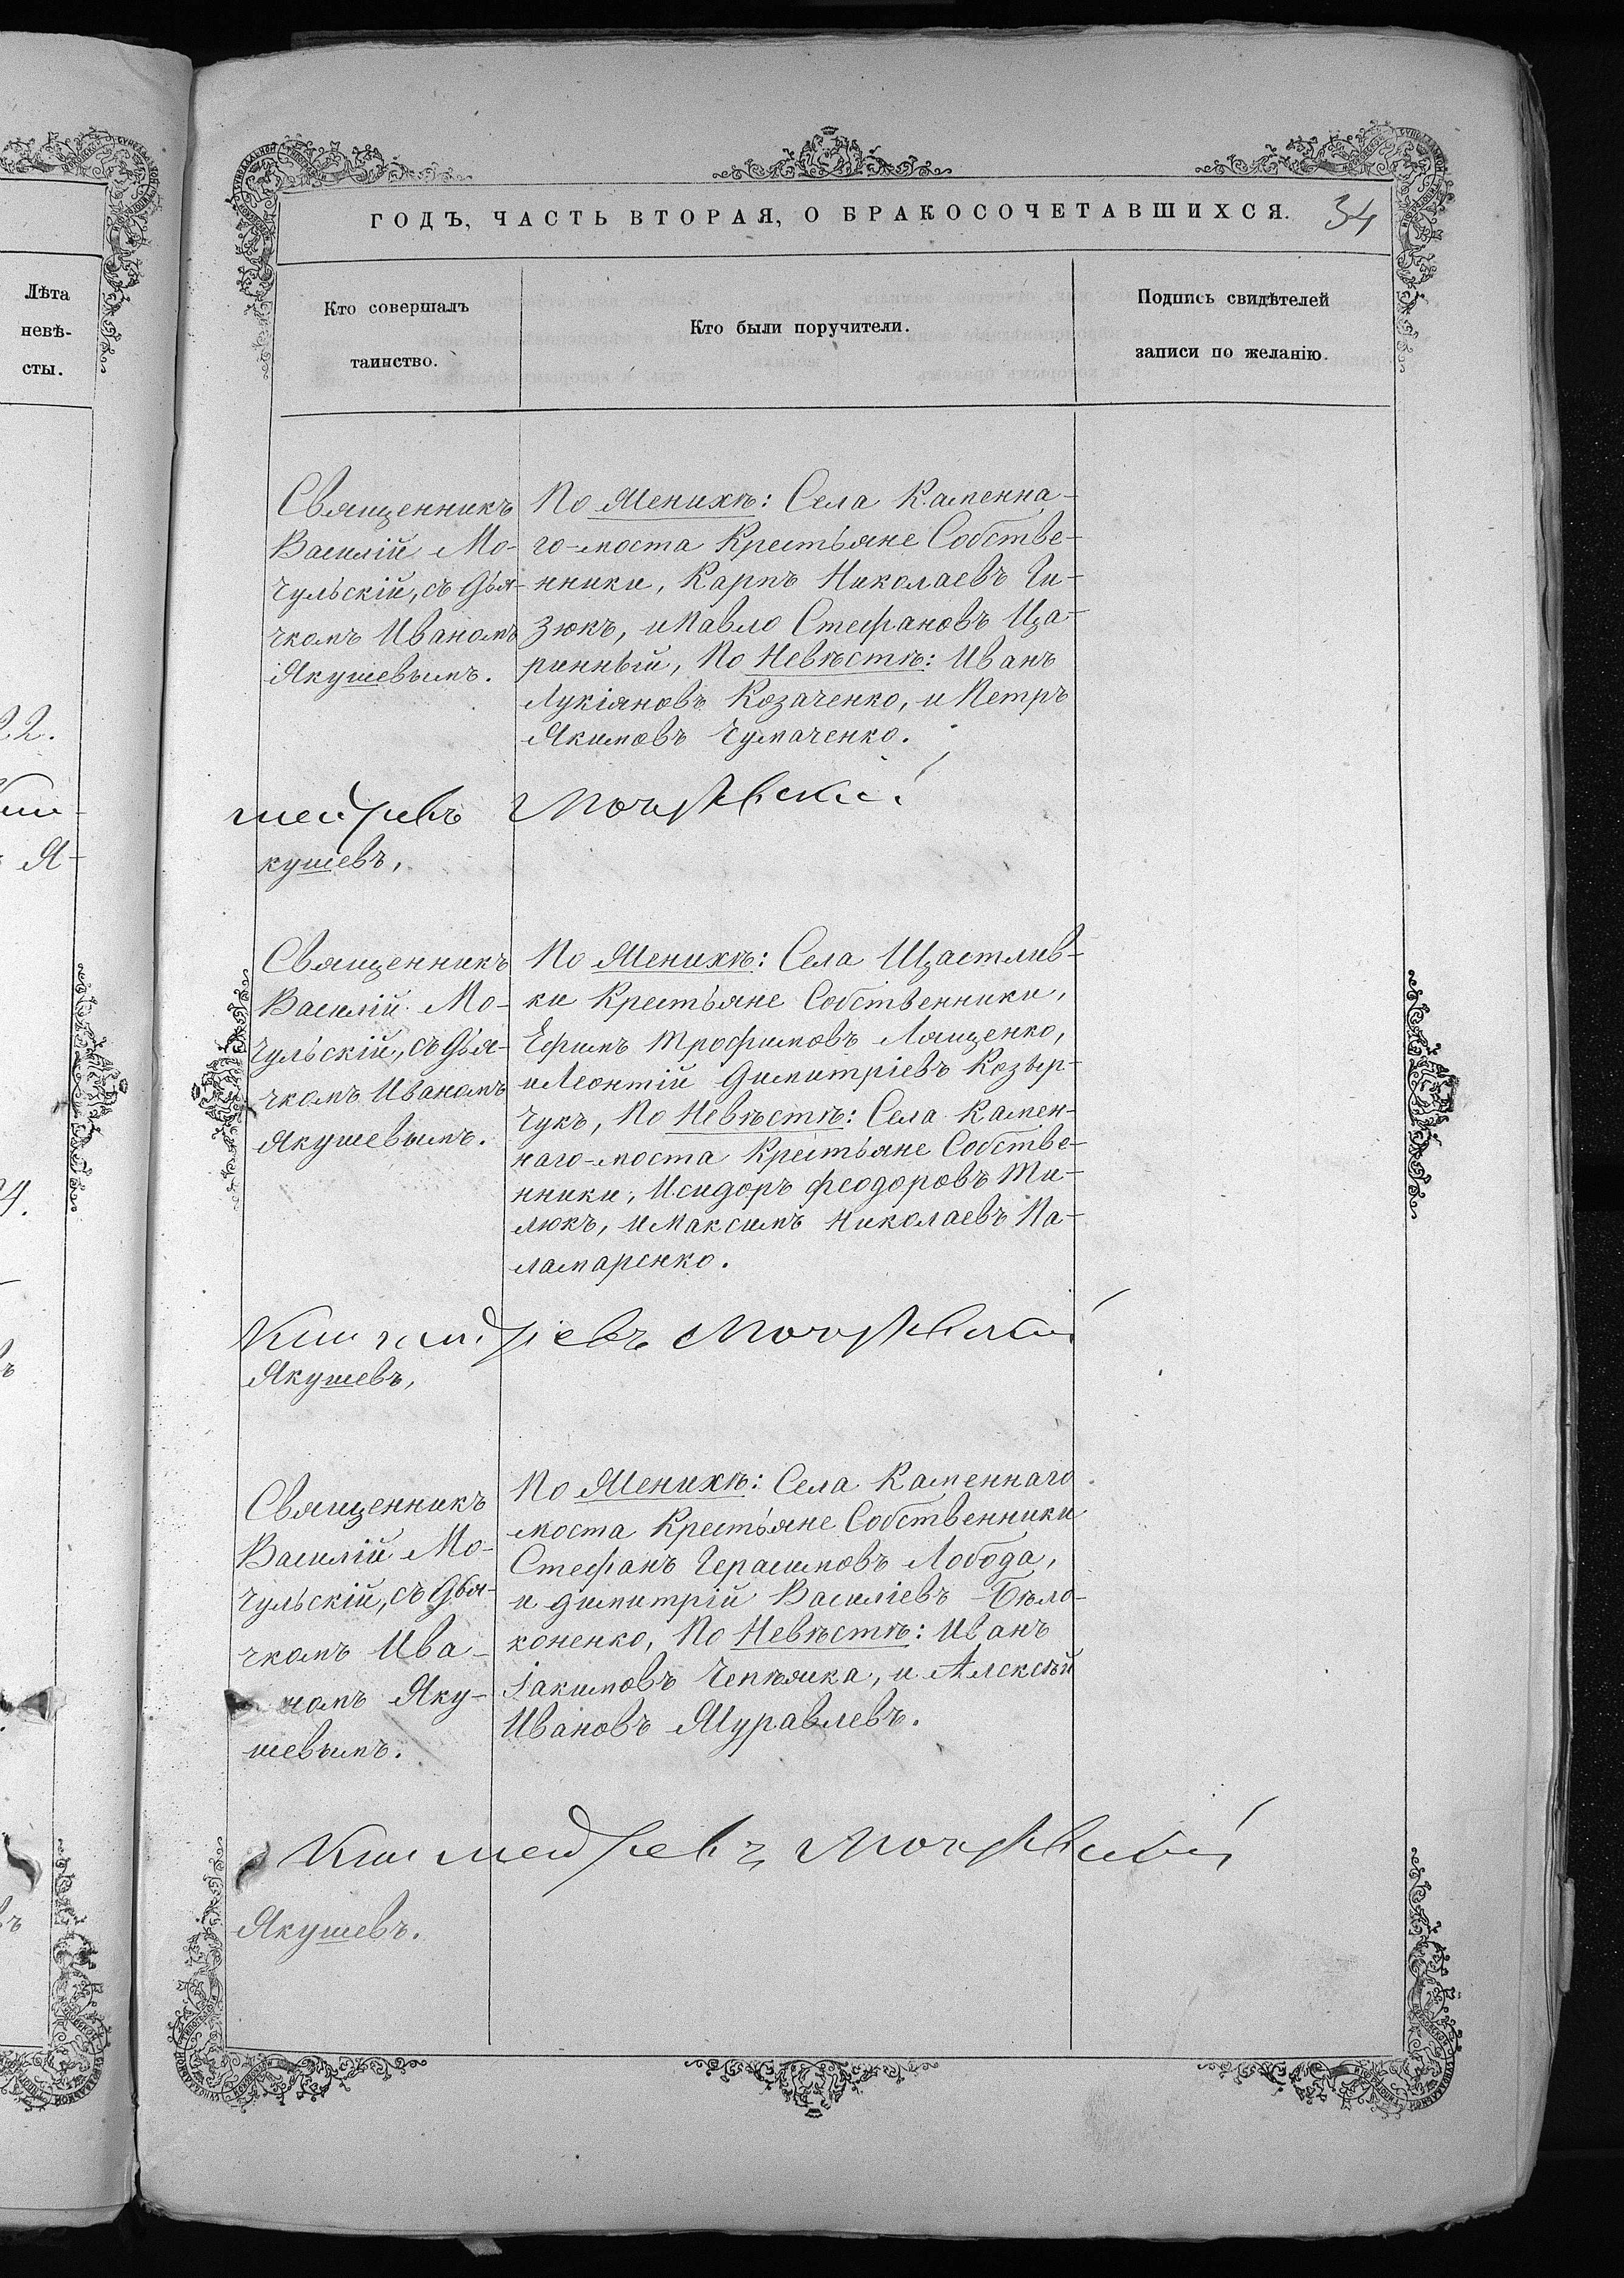 ГОДЪ, ЧАСТЬ ВТОРАЯ, О БРАКОСОЧЕТАВШИХСЯ. 34
Лѣта
невѣ-
сты.
Кто совершалъ
таинство.
Кто были поручители.
Подпись свидѣтелей
записи по желанію.
22.
Я-
Священникъ
Василій Мо-
чульскій, съ Дья-
чкомъ Иваномъ
Якушевымъ.
По Женихѣ: Села Каменна-
го-моста Крестьяне Собстве-
нники, Карпъ Николаевъ Ги-
зюкъ, и Павло Стефановъ Ца-
ринный, По Невѣстѣ: Иванъ
Лукіяновъ Козаченко, и Петръ
Якимовъ Чумаченко.
Мочульскій
кушевъ,
Священникъ
Василій Мо-
чульскій, съ Дья-
чкомъ Иваномъ
Якушевымъ.
По Женихѣ: Села Щастлив-
ки Крестьяне Собственники,
Ефимъ Трофимовъ Лященко,
и Леонтій Димитріевъ Козыр-
чукъ, По Невѣстѣ: Села Камен-
наго-моста Крестьяне Собстве-
нники, Исидоръ Феодоровъ Ти-
люкъ, и Максимъ Николаевъ Па-
ламаренко.
Мочульскій
Якушевъ,
Священникъ
Василій Мо-
чульскій, съ Дья-
чкомъ Ива-
номъ Яку-
шевымъ.
По Женихѣ: Села Каменнаго
моста Крестьяне Собственники
Стефанъ Герасимовъ Лобода,
и Димитрій Василіевъ Бѣло-
коненко, По Невѣстѣ: Иванъ
Іакимовъ и Алексѣй
Ивановъ Журавлевъ.
Мочульскій
Якушевъ.